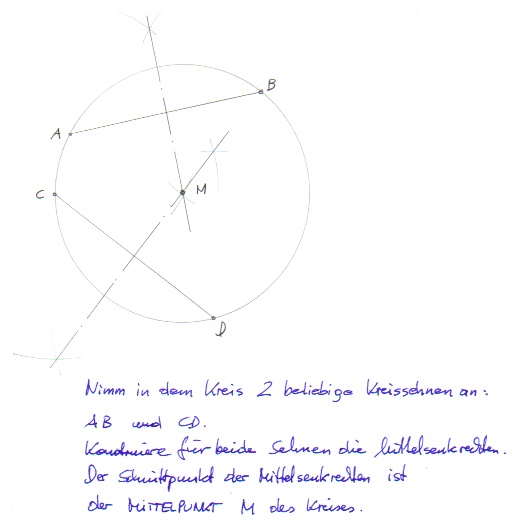 B
A
C
M
D
Nimm in dem Kreis 2 beliebige Kreissehnen an:
AB und CD.
Konstruiere für beide Sehnen die Mittelsenkrechten.
Der Schnittpunkt der Mittelsenkrechten ist
der MITTELPUNKT M des Kreises.